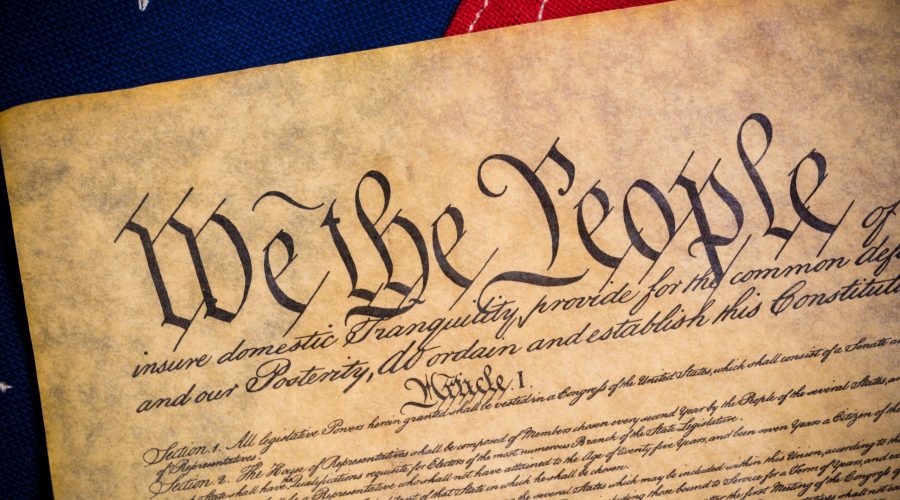 We the People of
insure domestic Tranquility, provide for the common def
and our Posterity, do ordain and establish this Constituti
Article I.
Section. 1. All legislative Powers herein granted shall be vested in a Congress of the United States, which shall consist of a Senate an
of Representatives.
Section. 2. The House of Representatives shall be composed of Members chosen every second Year by the People of the several States, an
in each State shall have the Qualifications requisite for Electors of the most numerous Branch of the State Legislature.
a Representative who shall not have attained to the Age of twenty five Years, and been seven Years a Citizen of the
of that State in which he shall be chosen.
the several States which may be included within this Union, according to the
including those bound to Service for a Term of Years, and
the first Meeting of the Congress of